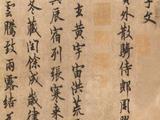 字文
員外散騎侍郎周
玄黃宇宙洪荒
昃辰宿列張寒來
冬藏閏餘成歲律
雲騰致雨露結